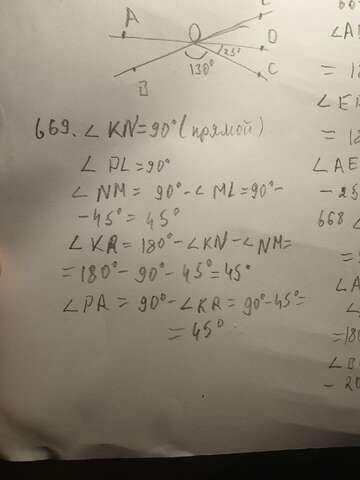 A
O
D
25°
C
130°
B
669. ∠ KN=90° (прямой)
∠ PL=90°
∠ NM= 90°-∠ ML=90°-
-45°= 45°
∠ KR= 180°-∠KN-∠NM=
=180°- 90°- 45°=45°
∠PA = 90°-∠KR= 90°-45°=
= 45°
∠A
= 1
∠E
= 18
∠AE
- 25
668 ∠
=
∠A
∠
=180
∠B
- 20